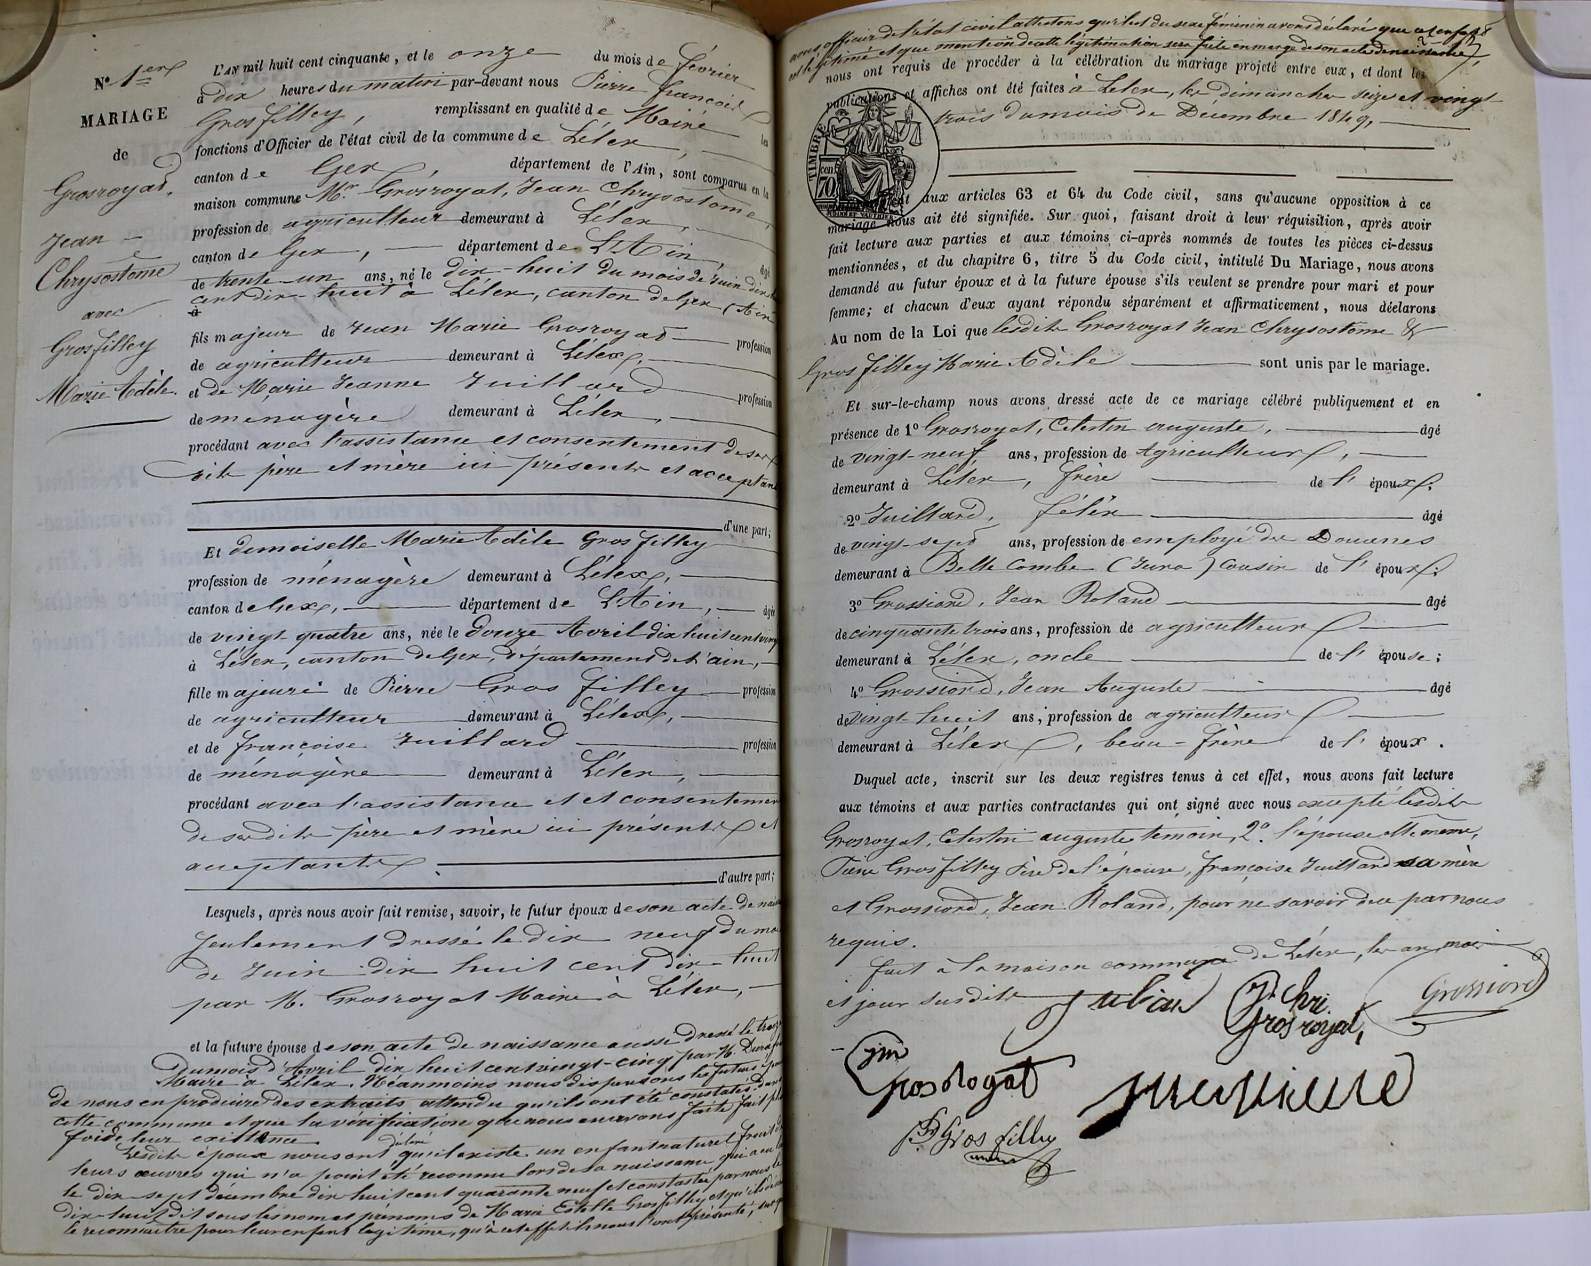 Nº 1er
MARIAGE
de
Grosroyat
Jean
Chrysostôme
avec
Grosfilley
Marie Adèle.
L'AN mil huit cent cinquante, et le onze du mois de février
à dix heures du matin par-devant nous Pierre François
Grosfilley, remplissant en qualité de Maire les
fonctions d'Officier de l'état civil de la commune de Lélex,
canton de Gex, département de l'Ain, sont comparus en la
maison commune Mr. Grosroyat, Jean Chrysostôme,
profession de agriculteur demeurant à Lélex,
canton de Gex, département de L'Ain, âgé
de trente un ans, né le dix-huit du mois de Juin dix
cent dix huit à Lélex, canton de Gex (Ain
à
fils majeur de Jean Marie Grosroyat profession
de agriculteur demeurant à Lélex,
et de Marie Jeanne Juillard profession
de ménagère demeurant à Lélex,
procédant avec l'assistance et consentement de ses
dits père et mère ici présents et acceptant
d'une part;
Et demoiselle Marie Adèle Grosfilley
profession de ménagère demeurant à Lélex,
canton de Gex, département de L'Ain, âgée
de vingt quatre ans, née le douze Avril dix huit cent vingt
à Lélex, canton de Gex, département de L'ain,
fille majeure de Pierre Gros filley profession
de agriculteur demeurant à Lélex,
et de françoise Juillard profession
de ménagère demeurant à Lélex,
procédant avec l'assistance et et consentement
de sesdits père et mère ici présents et
acceptants.
d'autre part;
Lesquels, après nous avoir fait remise, savoir, le futur époux de son acte de
seulement dressé le dix neuf du
de Juin dix huit cent dix-huit
par M. Grosroyat Maire à Lélex,
et la future épouse de son acte de naissance aussi dressé le
du mois d'Avril dix huit cent vingt-cinq par M.
Maire à Lélex. Néanmoins nous dispensons les futurs
de nous en produire des extraits attendu qu'ils ont été constatés dans
cette commune et que la vérification que nous en avons faite fait
foi de leur existence
déclaré
Lesdits époux nous ont qu'il existe un enfant naturel fruit
leurs œuvres qui n'a point été reconnu lors de sa naissance qui a eu
le dix-sept décembre dix huit cent quarante neuf et constatée par nous le
dix-huit dit sous les nom et prénoms de Marie Estelle Grosfilley et qu'ils
le reconnaitre pour leur enfant légitime, qu'à cet effet ils nous l'ont présenté,
nous officier de l'état civil attestons qu'il est du sexe féminin avons déclaré que cet enfant
est légitimé et que mention de cette légitimation sera faite en marge de son acte de naissance,
nous ont requis de procéder à la célébration du mariage projeté entre eux, et dont les
publications et affiches ont été faites à Lélex, les dimanches seize et vingt
trois du mois de Décembre 1849,
TIMBRE
70
aux articles 63 et 64 du Code civil, sans qu'aucune opposition à ce
mariage nous ait été signifiée. Sur quoi, faisant droit à leur réquisition, après avoir
fait lecture aux parties et aux témoins ci-après nommés de toutes les pièces ci-dessus
mentionnées, et du chapitre 6, titre 5 du Code civil, intitulé Du Mariage, nous avons
demandé au futur époux et à la future épouse s'ils veulent se prendre pour mari et pour
femme; et chacun d'eux ayant répondu séparément et affirmativement, nous déclarons
Au nom de la Loi que lesdits Grosroyat Jean Chrysostôme &
Gros filley Marie Adèle sont unis par le mariage.
Et sur-le-champ nous avons dressé acte de ce mariage célébré publiquement et en
présence de 1º Grosroyat, Célestin auguste, âgé
de vingt-neuf ans, profession de Agriculteur,
demeurant à Lélex, frère de l'époux;
2º Juillard, félix âgé
de vingt-sept ans, profession de employé de Douanes
demeurant à Belle Combe (Jura) cousin de l'époux;
3º Grossiord, Jean Roland âgé
de cinquante trois ans, profession de agriculteur
demeurant à Lélex, oncle de l'épouse;
4º Grossiord, Jean Auguste âgé
de vingt-huit ans, profession de agriculteur
demeurant à Lélex, beau-frère de l'époux.
Duquel acte, inscrit sur les deux registres tenus à cet effet, nous avons fait lecture
aux témoins et aux parties contractantes qui ont signé avec nous excepté lesdits
Grosroyat, Célestin auguste témoin, 2º. l'épouse elle même,
Pierre Grosfilley Père de l'épouse, françoise Juillard sa mère
et Grossiord, Jean Roland, pour ne savoir de ce par nous
requis.
fait à la maison commune de Lélex, les an, mois
et jour susdits
Jn Chri.
Grosroyat,
Grossiord
jm
Grosrogat
Gros filley